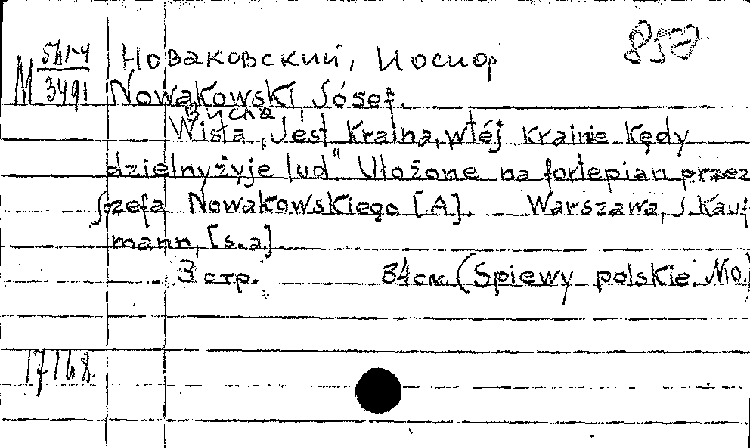 850
M 571-4 Новаковский, Иосиф
3491 Nowakowski Józef.
Wisła „Jest kraina, w téj krainie kędy
dzielny żyje lud" Ułożone na fortepian przez
Józefa Nowakowskiego [A]. Warszawa, J. Kauf
mann, [s.a]
3 стр. 34 см. (Spiewy polskie. No.)
17168